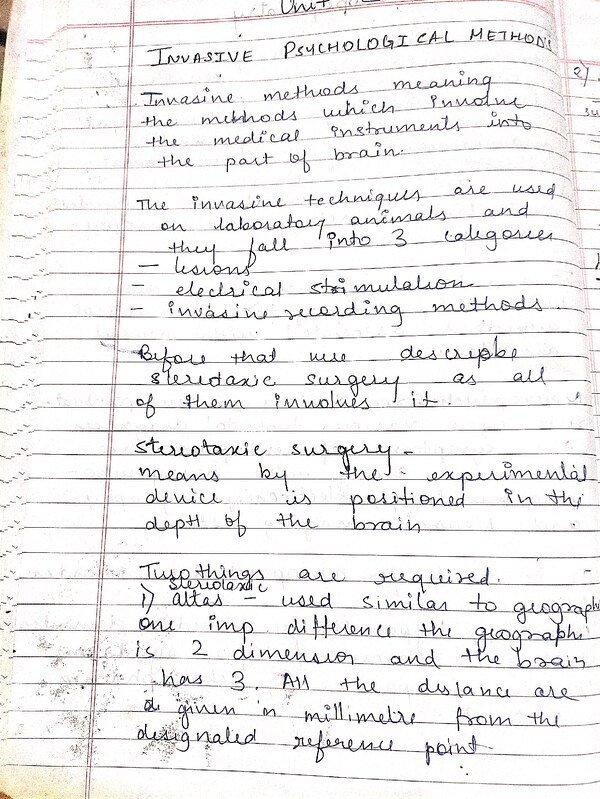 Unit
INVASIVE PSYCHOLOGICAL METHODS
Invasine methods meaning
the methods which involve
the medical instruments into
the part of brain.
The invasine techniques are used
on laboratory animals and
they fall into 3 categories
- lesions
- electrical stimulation
- invasine recording methods.
Before that we describe
stereotaxic surgery as all
of them involves it.
Stereotaxic surgery -
means by the experimental
device is positioned in the
depth of the brain
Two things are required.
stereotaxic
i) altas - used similar to geograph
one imp difference the geographi
is 2 dimension and the brain
has 3. All the distance are
given in millimetre from the
designated reference point.
2)
su